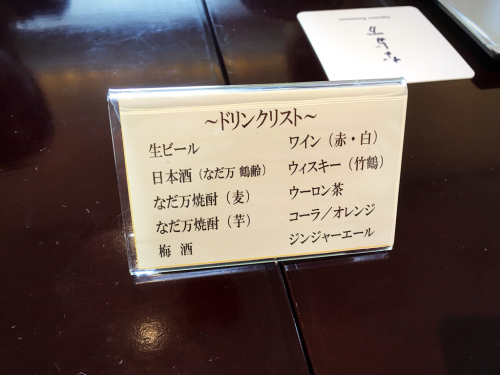 ～ドリンクリスト～
生ビール
日本酒（なだ万 鶴齢）
なだ万焼酎（麦）
なだ万焼酎（芋）
梅 酒
ワイン（赤・白）
ウィスキー（竹鶴）
ウーロン茶
コーラ／オレンジ
ジンジャーエール